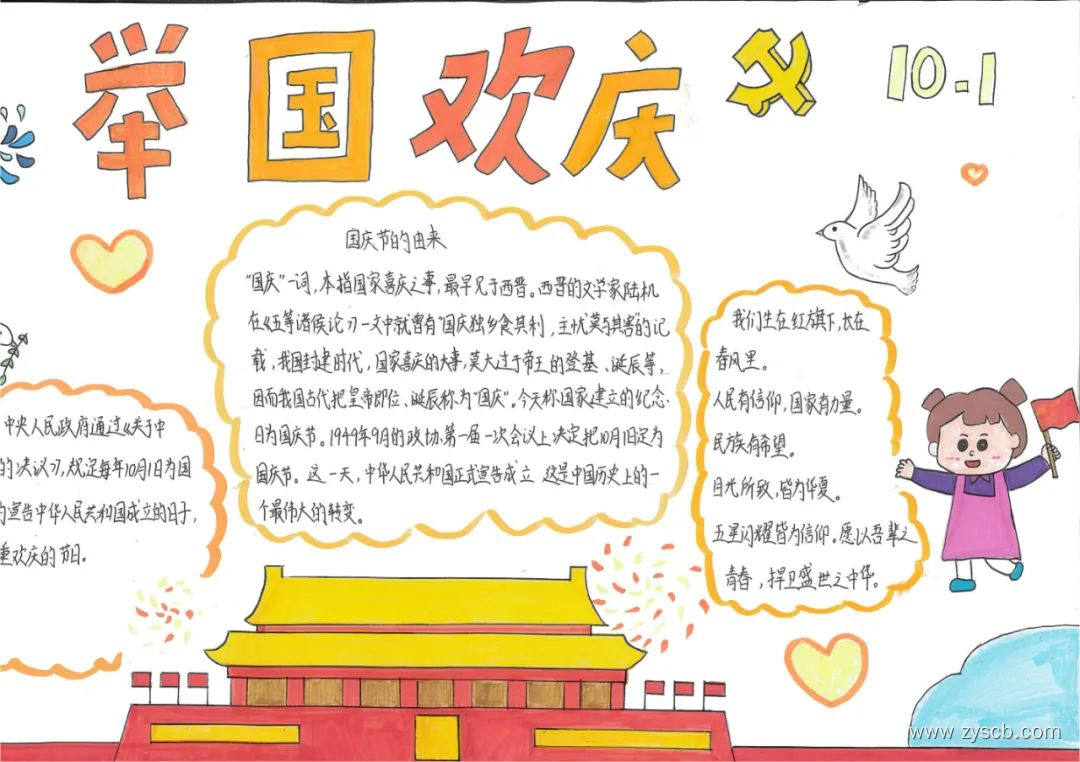 举国欢庆
10.1
国庆节的由来
“国庆”一词,本指国家喜庆之事,最早见于西晋。西晋的文学家陆机
在《五等诸侯论》一文中就曾有“国庆独乡食其利,主忧莫与其害”的记
载,我国封建时代,国家喜庆的大事,莫大过于帝王的登基、诞辰等,
因而我国古代把皇帝即位、诞辰称为“国庆”。今天称国家建立的纪念
日为国庆节。1949年9月的政协第一届一次会议上决定把10月1日定为
国庆节。这一天,中华人民共和国正式宣告成立 这是中国历史上的一
个最伟大的转变。
中央人民政府通过《关于中
的决议》,规定每年10月1日为国
宣告中华人民共和国成立的日子,
重欢庆的节日。
我们生在红旗下,长在
春风里。
人民有信仰,国家有力量。
民族有希望。
目光所致,皆为华夏。
五星闪耀皆为信仰。愿以吾辈之
青春,捍卫盛世之中华。
www.zyscb.com